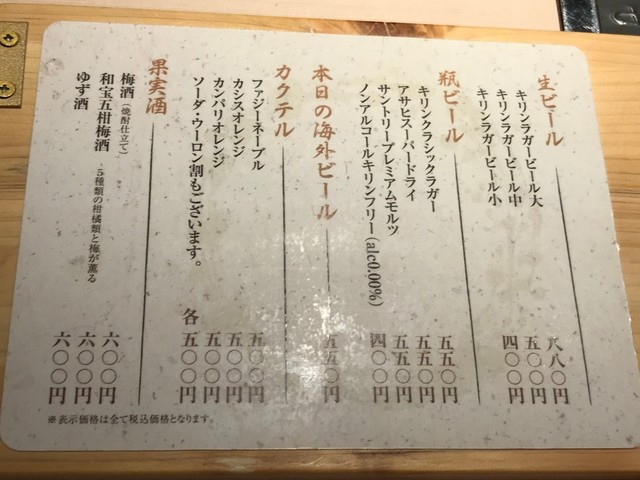 生ビール
キリンラガービール大 八八〇円
キリンラガービール中 五〇〇円
キリンラガービール小 四〇〇円
瓶ビール
キリンクラシックラガー 五五〇円
アサヒスーパードライ 五五〇円
サントリープレミアムモルツ 五五〇円
ノンアルコールキリンフリー(alc0.00%) 四〇〇円
本日の海外ビール 五五〇円
カクテル
ファジーネーブル 五〇〇円
カシスオレンジ 五〇〇円
カンパリオレンジ 五〇〇円
ソーダ・ウーロン割もございます。 各 五〇〇円
果実酒
梅酒(焼酎仕立て) 六〇〇円
和宝五柑梅酒 5種類の柑橘類と梅が薫る 六〇〇円
ゆず酒 六〇〇円
※表示価格は全て税込価格となります。